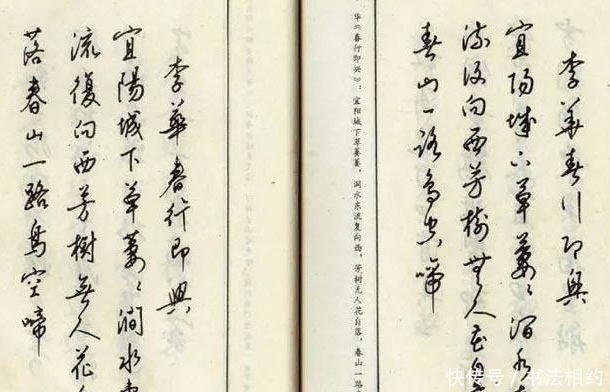 李華春行即興
宜陽城下草萋〻澗水
流復向西芳樹無人花自
春山一路鳥空啼
华《春行即兴》：宜阳城下草萋萋，涧水东流复向西，芳树无人花自落，春山一路
李華春行即興
宜陽城下草萋〻澗水東
流復向西芳樹無人花自
落春山一路鳥空啼
快传号/书法相约